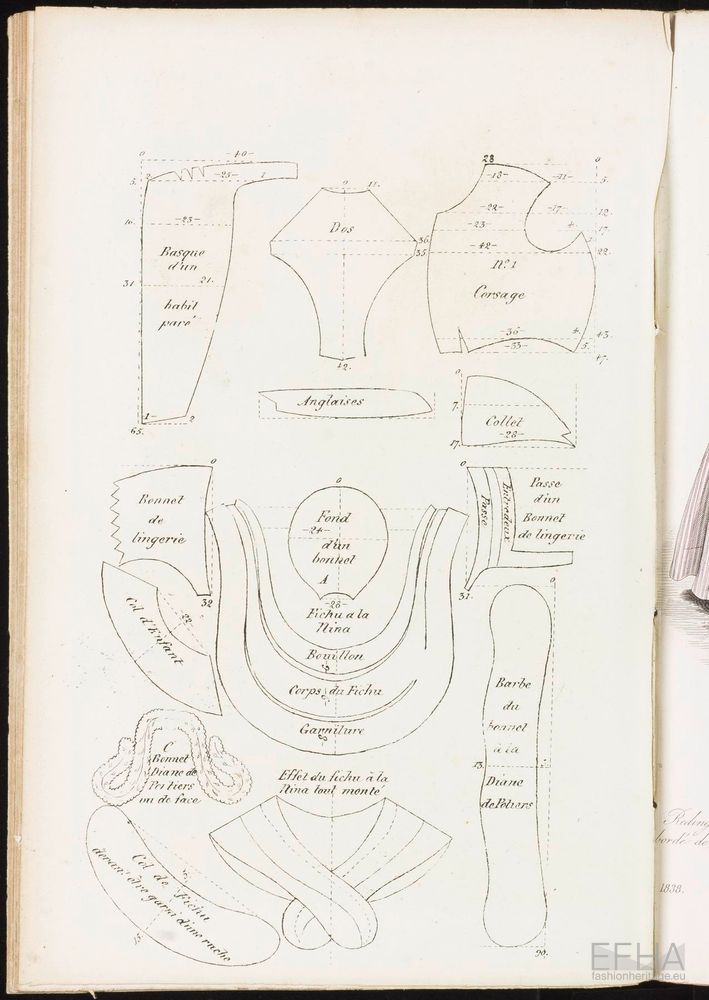 0
40
2
25
1
5.
10.
23
Basque
d'un
31.
21.
habil
paré
1
2
65.
0
12.
Dos
36.
35.
42.
28
0
18
11
5.
22
17
12.
23
4.
17.
42
22.
N° 1
Corsage
36
4.
43.
33
5.
47.
Anglaises
0
7.
Collet
17.
28
0
Bonnet
de
lingerie
32
0
Fond
24
d'un
bonnet
A
28
Fichu a la
Nina
Bouillon
Corps du Fichu
Garniture
0
Passe
Entredeux
Passe
d'un
Bonnet
de lingerie
31.
Col d'Enfant
22
0
Barbe
du
bonnet
à la
13.
Diane
de Potiers
90.
C
Bonnet
Diane de
Poitiers
vu de face
Effet du fichu à la
Nina tout monté
Col de Fichu
devant être garni d'une ruche
15.
Reding
bordé de
1838.
EFHA
fashionheritage.eu